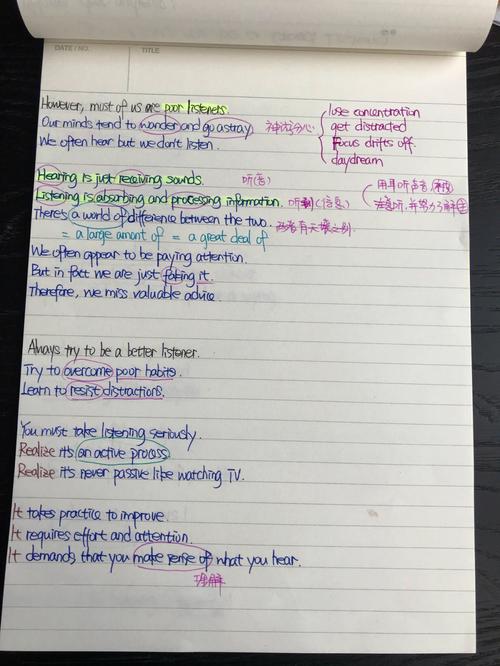 DATE / NO.
TITLE
However, most of us are poor listeners.
Our minds tend to wander and go astray 神试分心
lose concentration
get distracted
Focus drifts off.
daydream
We often hear but we don't listen.
Hearing is just receiving sounds. 听(音)
用耳听声音
Listening is absorbing and processing information.
There's a world of difference between the two. 两者有天壤之别.
= a large amont of = a great deal of
We often appear to be paying attention.
But in fact we are just faking it.
Therefore, we miss valuable advice.
Always try to be a better listener.
Try to overcome poor habits.
Learn to resist distractions.
You must take listening seriously.
Realize it's an active process
Realize it's never passive like watching TV.
It takes practice to improve.
It requires effort and attention.
It demands that you make sense of what you hear.
理解